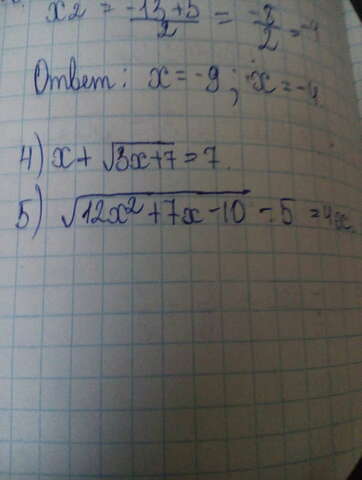 x2 = \frac{-13+5}{2} = \frac{-8}{2} = -4
Ответ: x = -9; x = -4
4) x + \sqrt{3x+7} = 7.
5) \sqrt{12x^2+7x-10} - 5 = 4x.